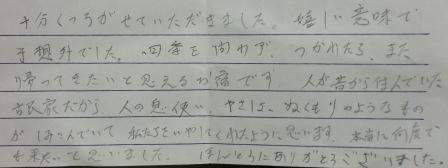 十分くつろがせていただきました。嬉しい意味で
予想外でした。四季を問わず、つかれたら、また
帰ってきたいと思えるお宿です 人が昔から住んでいた
古民家だから、人の息使い、やさしさ、ぬくもりのようなもの
がしみこんでいて私たちをいやしてくれたように思います。本当に何度で
も来たいと思いました。 ほんとうにありがとうございました。